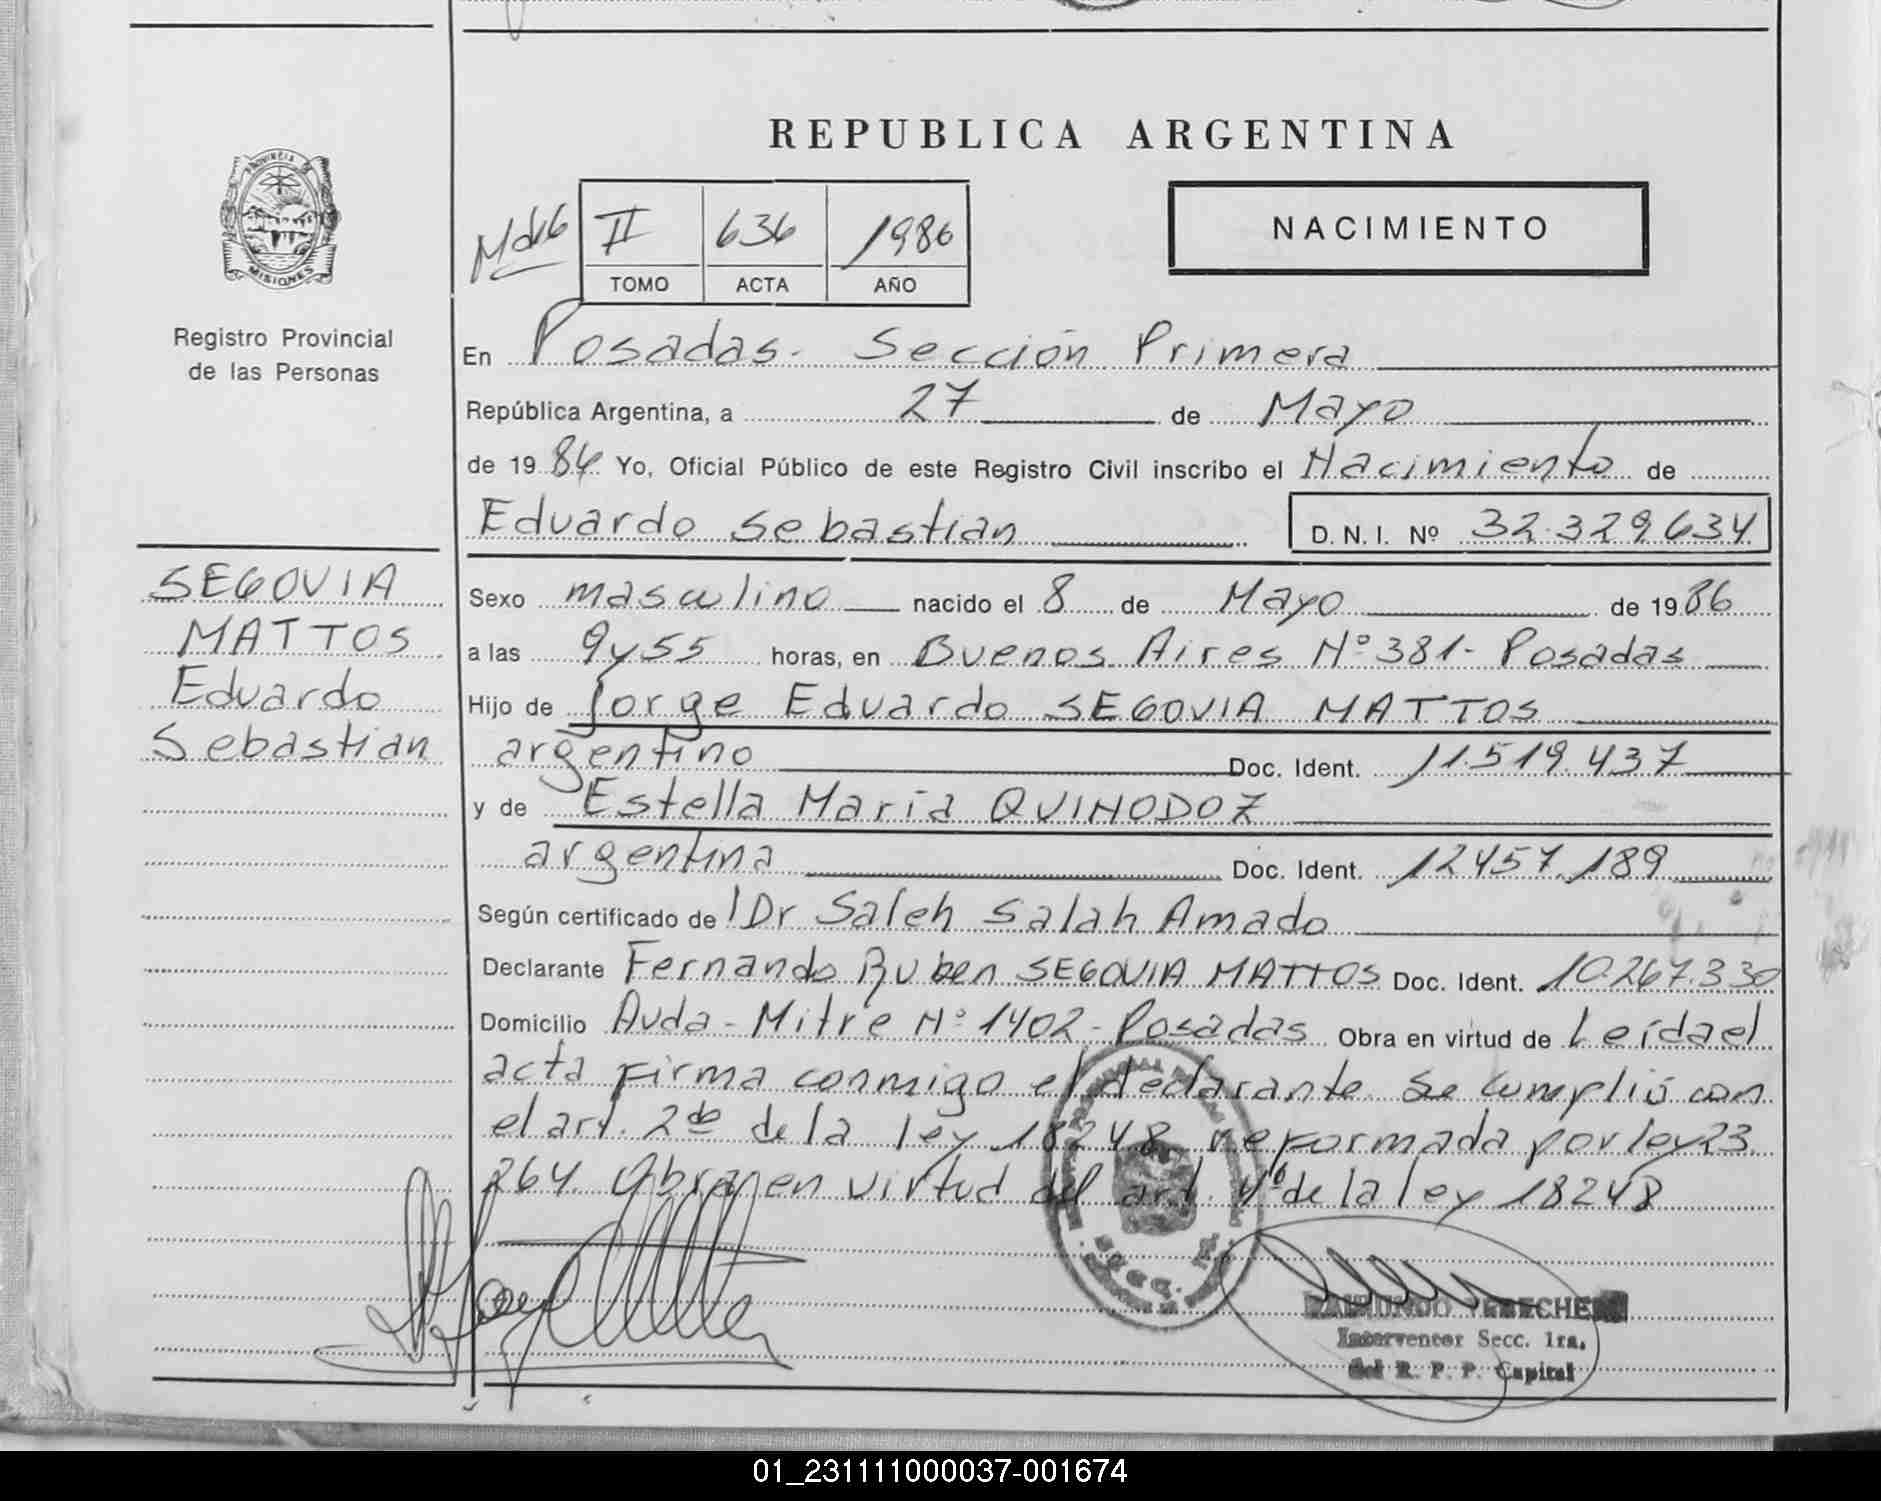 REPUBLICA ARGENTINA
PROVINCIA DE
MISIONES
Registro Provincial
de las Personas
II 636 1986
TOMO ACTA AÑO
NACIMIENTO
En Posadas. Sección Primera
República Argentina, a 27 de Mayo
de 19 86 Yo, Oficial Público de este Registro Civil inscribo el Nacimiento de
Eduardo Sebastian D.N.I. Nº 32.329.634
SEGOVIA
MATTOS
Eduardo
Sebastian
Sexo masculino nacido el 8 de Mayo de 19 86
a las 9 y 55 horas, en Buenos Aires Nº 381- Posadas
Hijo de Jorge Eduardo SEGOVIA MATTOS
argentino Doc. Ident. 11.519.437
y de Estella Maria QUINODOZ
argentina Doc. Ident. 12457.189
Según certificado de Dr Saleh Salah Amado
Declarante Fernando Ruben SEGOVIA MATTOS Doc. Ident. 10.267.330
Domicilio Avda - Mitre Nº 1402 - Posadas Obra en virtud de Leída el
acta firma conmigo el declarante. Se cumplió con
el art. 2do de la ley 18248 reformada por ley 23.
264. Obran en virtud del art. 4º de la ley 18248
Interventor Secc. 1ra.
del R. P. P. Capital
01_231111000037-001674